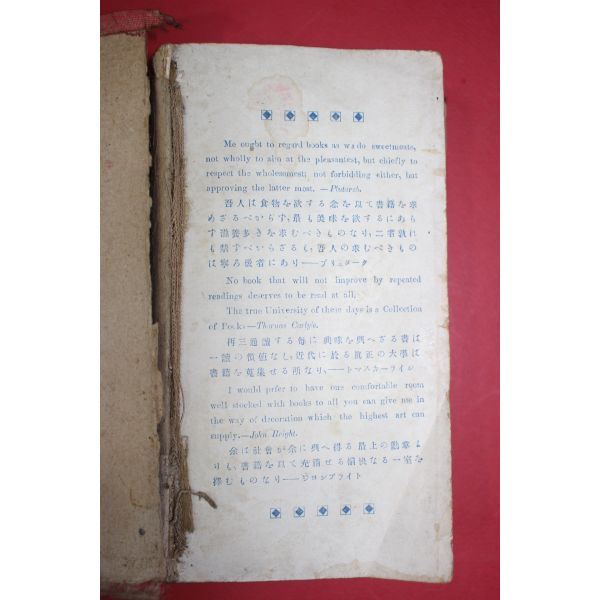 Me ought to regard books as we do sweetmeats,
not wholly to aim at the pleasantest, but chiefly to
respect the wholesomest; not forbidding either, but
approving the latter most. —Plutarch.
吾人は食物を欲する念を以て書籍を求
めざるべからず、最も美味を欲するにあら
ず滋養多きを求むべきものなり、二者孰れ
も禁ずべからざるも、吾人の求むべきもの
は寧ろ後者にあり——プリュターク
No book that will not improve by repeated
readings deserves to be read at all.
The true University of these days is a Collection
of Books—Thomas Carlyle.
再三通讀する毎に興味を與へざる書は
一讀の價値なし、近代に於る眞正の大學は
書籍を蒐集せる所なり、——トマスカーライル
I would prfer to have one comfortable room
well stocked with books to all you can give me in
the way of decoration which the highest art can
supply.—John Bright.
余は社會が余に與へ得る最上の勳章よ
りも、書籍を以て充滿せる愉快なる一室を
擇むものなり——ジョンブライト